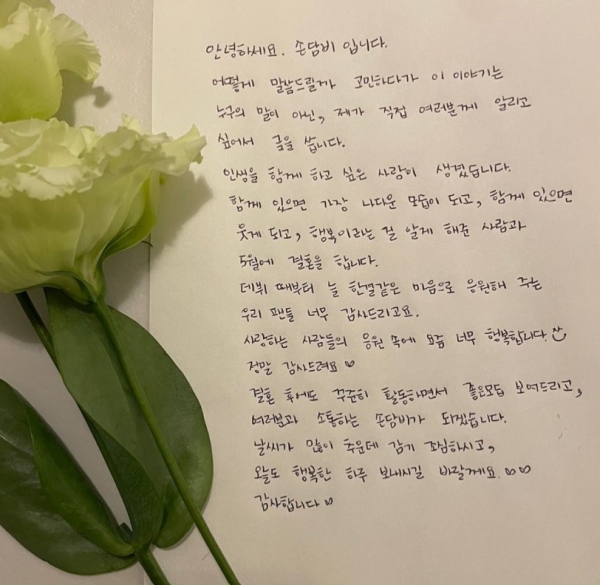 안녕하세요. 손담비 입니다.
어떻게 말씀드릴까 고민하다가 이 이야기는
누구의 말이 아닌, 제가 직접 여러분께 알리고
싶어서 글을 씁니다.
인생을 함께 하고 싶은 사람이 생겼습니다.
함께 있으면 가장 나다운 모습이 되고, 함께 있으면
웃게 되고, 행복이라는 걸 알게 해준 사람과
5월에 결혼을 합니다.
데뷔 때부터 늘 한결같은 마음으로 응원해 주는
우리 팬들 너무 감사드리고요.
사랑하는 사람들의 응원 속에 요즘 너무 행복합니다.
정말 감사드려요 ♡
결혼 후에도 꾸준히 활동하면서 좋은모습 보여드리고,
여러분과 소통하는 손담비가 되겠습니다.
날씨가 많이 추운데 감기 조심하시고,
오늘도 행복한 하루 보내시길 바랄게요. ♡♡
감사합니다 ♡